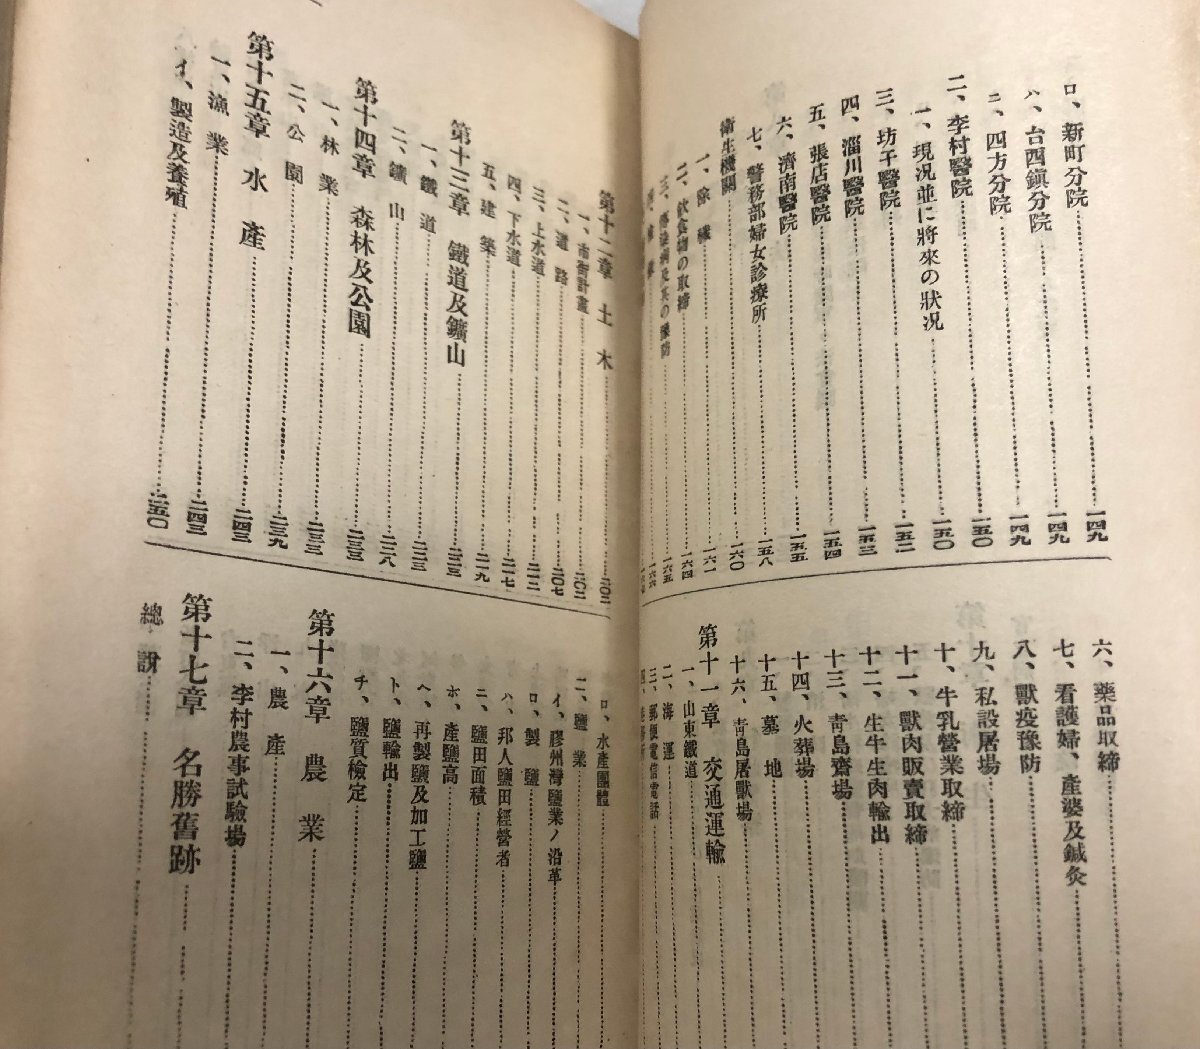 ロ、新町分院 一四九
ハ、台西鎮分院 一四九
ニ、四方分院 一四九
二、李村醫院 一五〇
一、現況並に將來の狀況 一五〇
三、坊子醫院 一五二
四、淄川醫院 一五三
五、張店醫院 一五四
六、濟南醫院 一五五
七、警務部婦女診療所 一五八
衛生機關 一六〇
一、除穢 一六一
二、飲食物の取締 一六四
三、傳染病及其の豫防 一六五
六、藥品取締
七、看護婦、產婆及鍼灸
八、獸疫豫防
九、私設屠場
十、牛乳營業取締
十一、獸肉販賣取締
十二、生牛生肉輸出
十三、靑島齋場
十四、火葬場
十五、墓地
十六、靑島屠獸場
第十一章 交通運輸
一、山東鐵道
二、海運
三、郵便電信電話
第十二章 土木 二〇二
一、市街計畫 二〇二
二、道路 二〇七
三、上水道 二一二
四、下水道 二一七
五、建築 二一九
第十三章 鐵道及鑛山 二二三
一、鐵道 二二三
二、鑛山 二二八
第十四章 森林及公園 二三三
一、林業 二三三
二、公園 二三九
第十五章 水產 二四三
一、漁業 二四三
イ、製造及養殖 二五〇
ロ、水產團體
二、鹽業
イ、膠州灣鹽業ノ沿革
ロ、製鹽
ハ、邦人鹽田經營者
ニ、鹽田面積
ホ、產鹽高
ヘ、再製鹽及加工鹽
ト、鹽輸出
チ、鹽質檢定
第十六章 農業
一、農產
二、李村農事試驗場
第十七章 名勝舊跡
總說